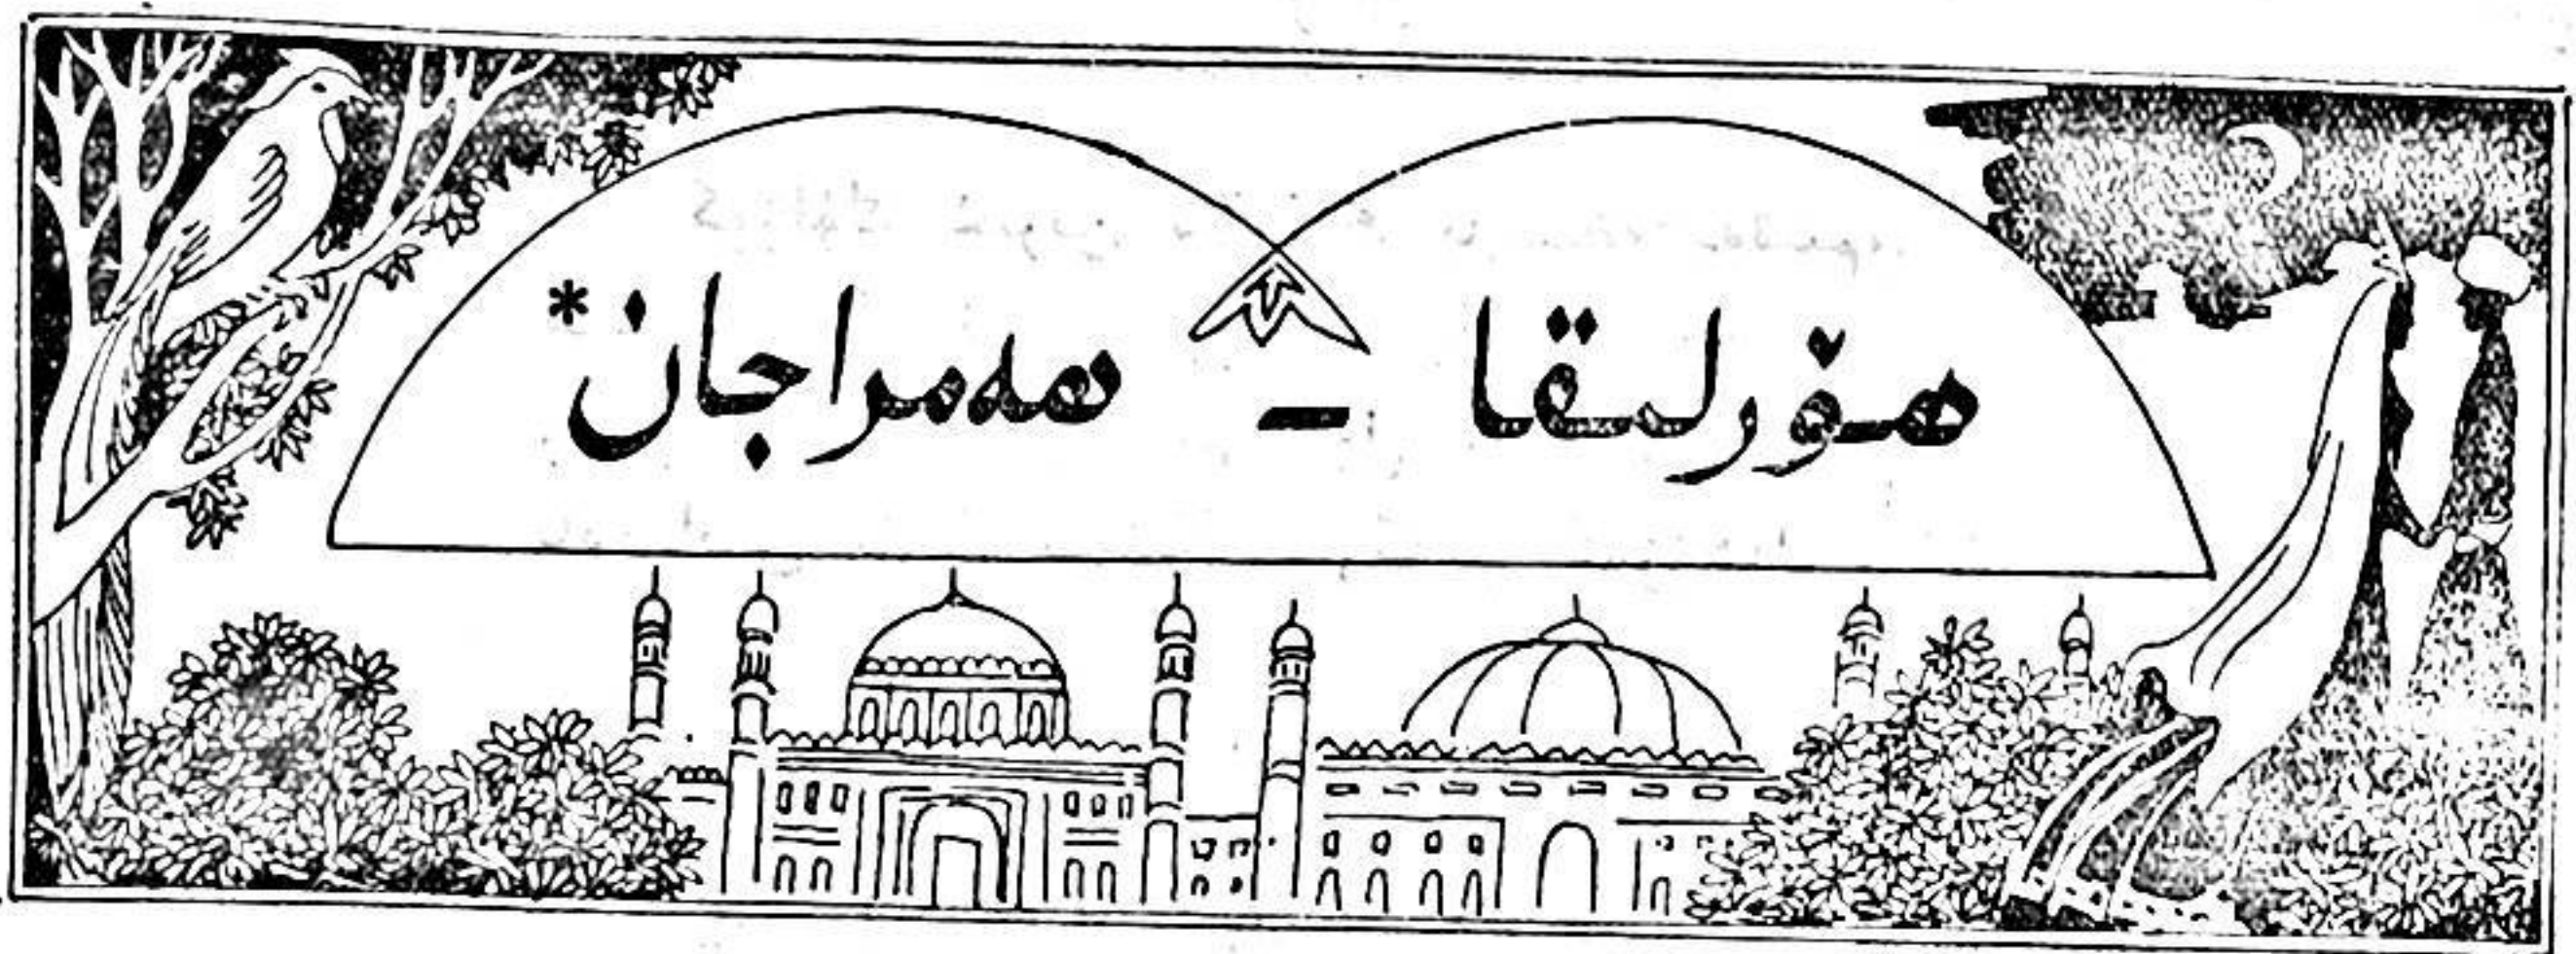 ھۆرلىقا - ھەمراجان*